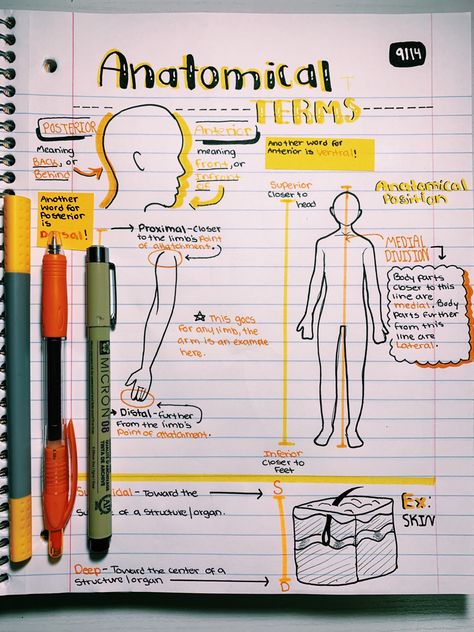 9/14
Anatomical
TERMS
POSTERIOR
Meaning
BACK, or
Behind
Anterior
meaning
Front, or
Infront
of
Another word for
Anterior is Ventral!
Another
Word for
Posterior
is
Dorsal!
Proximal-closer
to the limb's Point
of attatchment.
☆ This goes
For any limb, the
arm is an example
here.
Distal-further
From the limb's
Point of attatchment.
Superior
Closer to
head
Inferior
Closer to
Feet
Anatomical
Position
MEDIAL
DIVISION
Body parts
closer to this
line are
medial. Body
Parts further
from this
line are
Lateral.
MICRON 08
- Toward the
of a structure/organ.
Deep - Toward the center of a
structure/organ
S
D
Ex:
SKIN